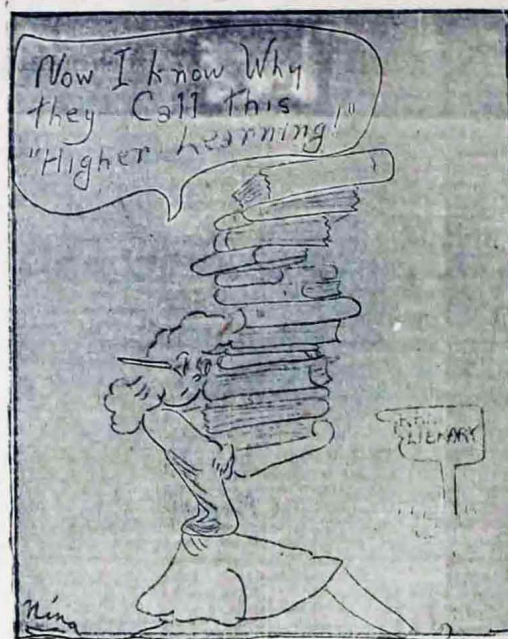 Now I know Why
they Call This
"Higher Learning!"
LIBRARY
Nina